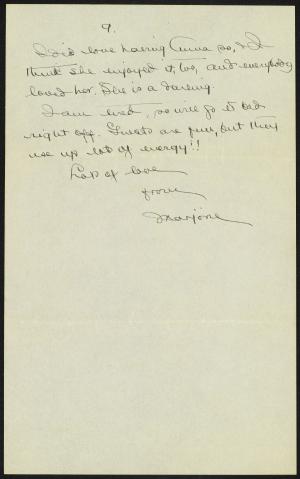 9.
I did love having Anna so, & I
think she enjoyed it, too, and everybody
loved her. She is a darling.
I am tired, so will go to bed
right off. Guests are fun, but they
use up lots of energy!!
Lots of love
from
Marjorie